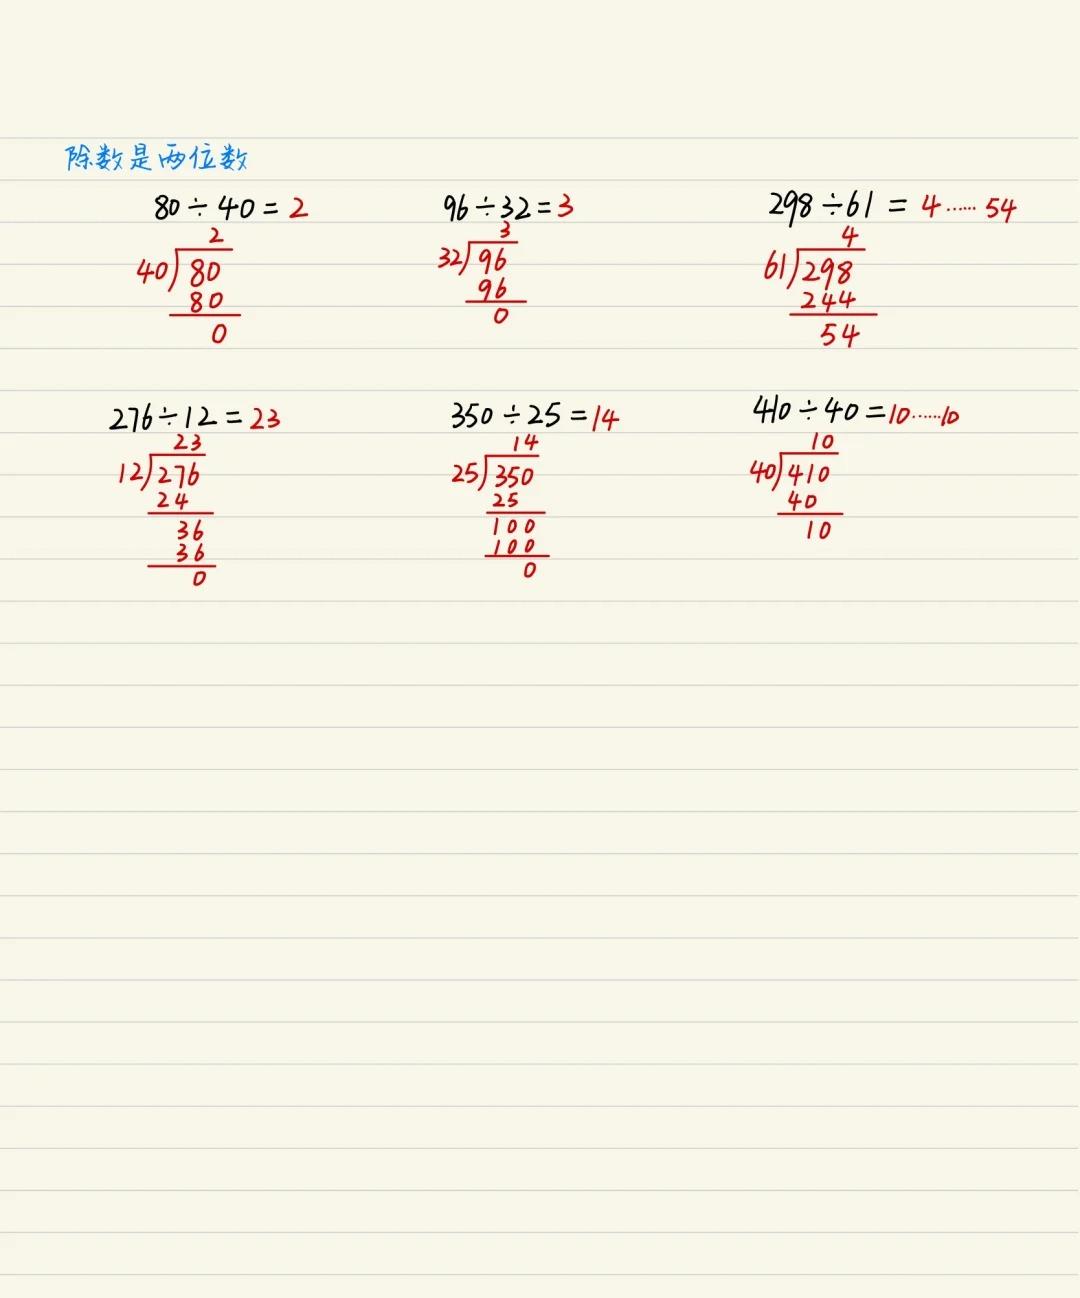 除数是两位数
80÷40=2
2
40)80
80
0
96÷32=3
3
32)96
96
0
298÷61=4……54
4
61)298
244
54
276÷12=23
23
12)276
24
36
36
0
350÷25=14
14
25)350
25
100
100
0
410÷40=10……10
10
40)410
40
10